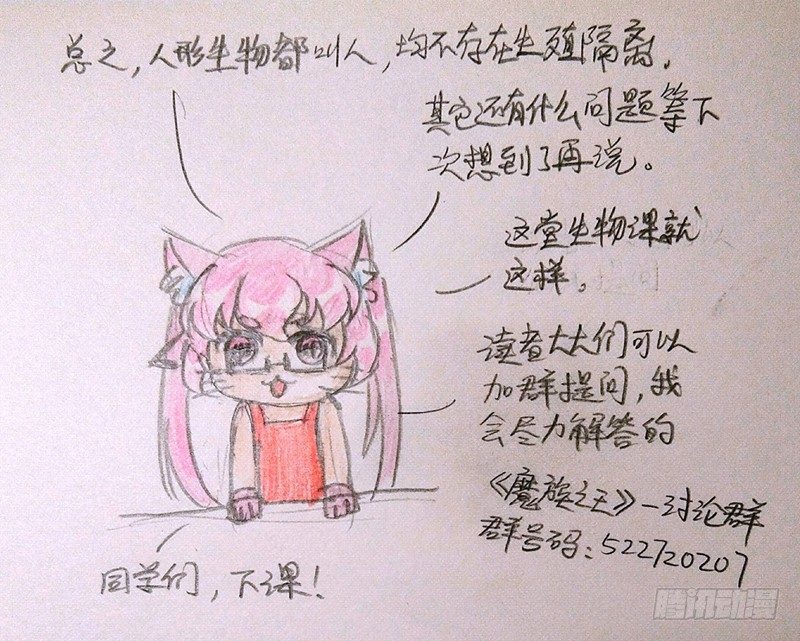 总之，人形生物都叫人，均不存在生殖隔离，
其它还有什么问题等下
次想到了再说。
这堂生物课就
这样。
读者大大们可以
加群提问，我
会尽力解答的
《魔族之王》—讨论群
群号码：522720207
同学们，下课！
腾讯动漫